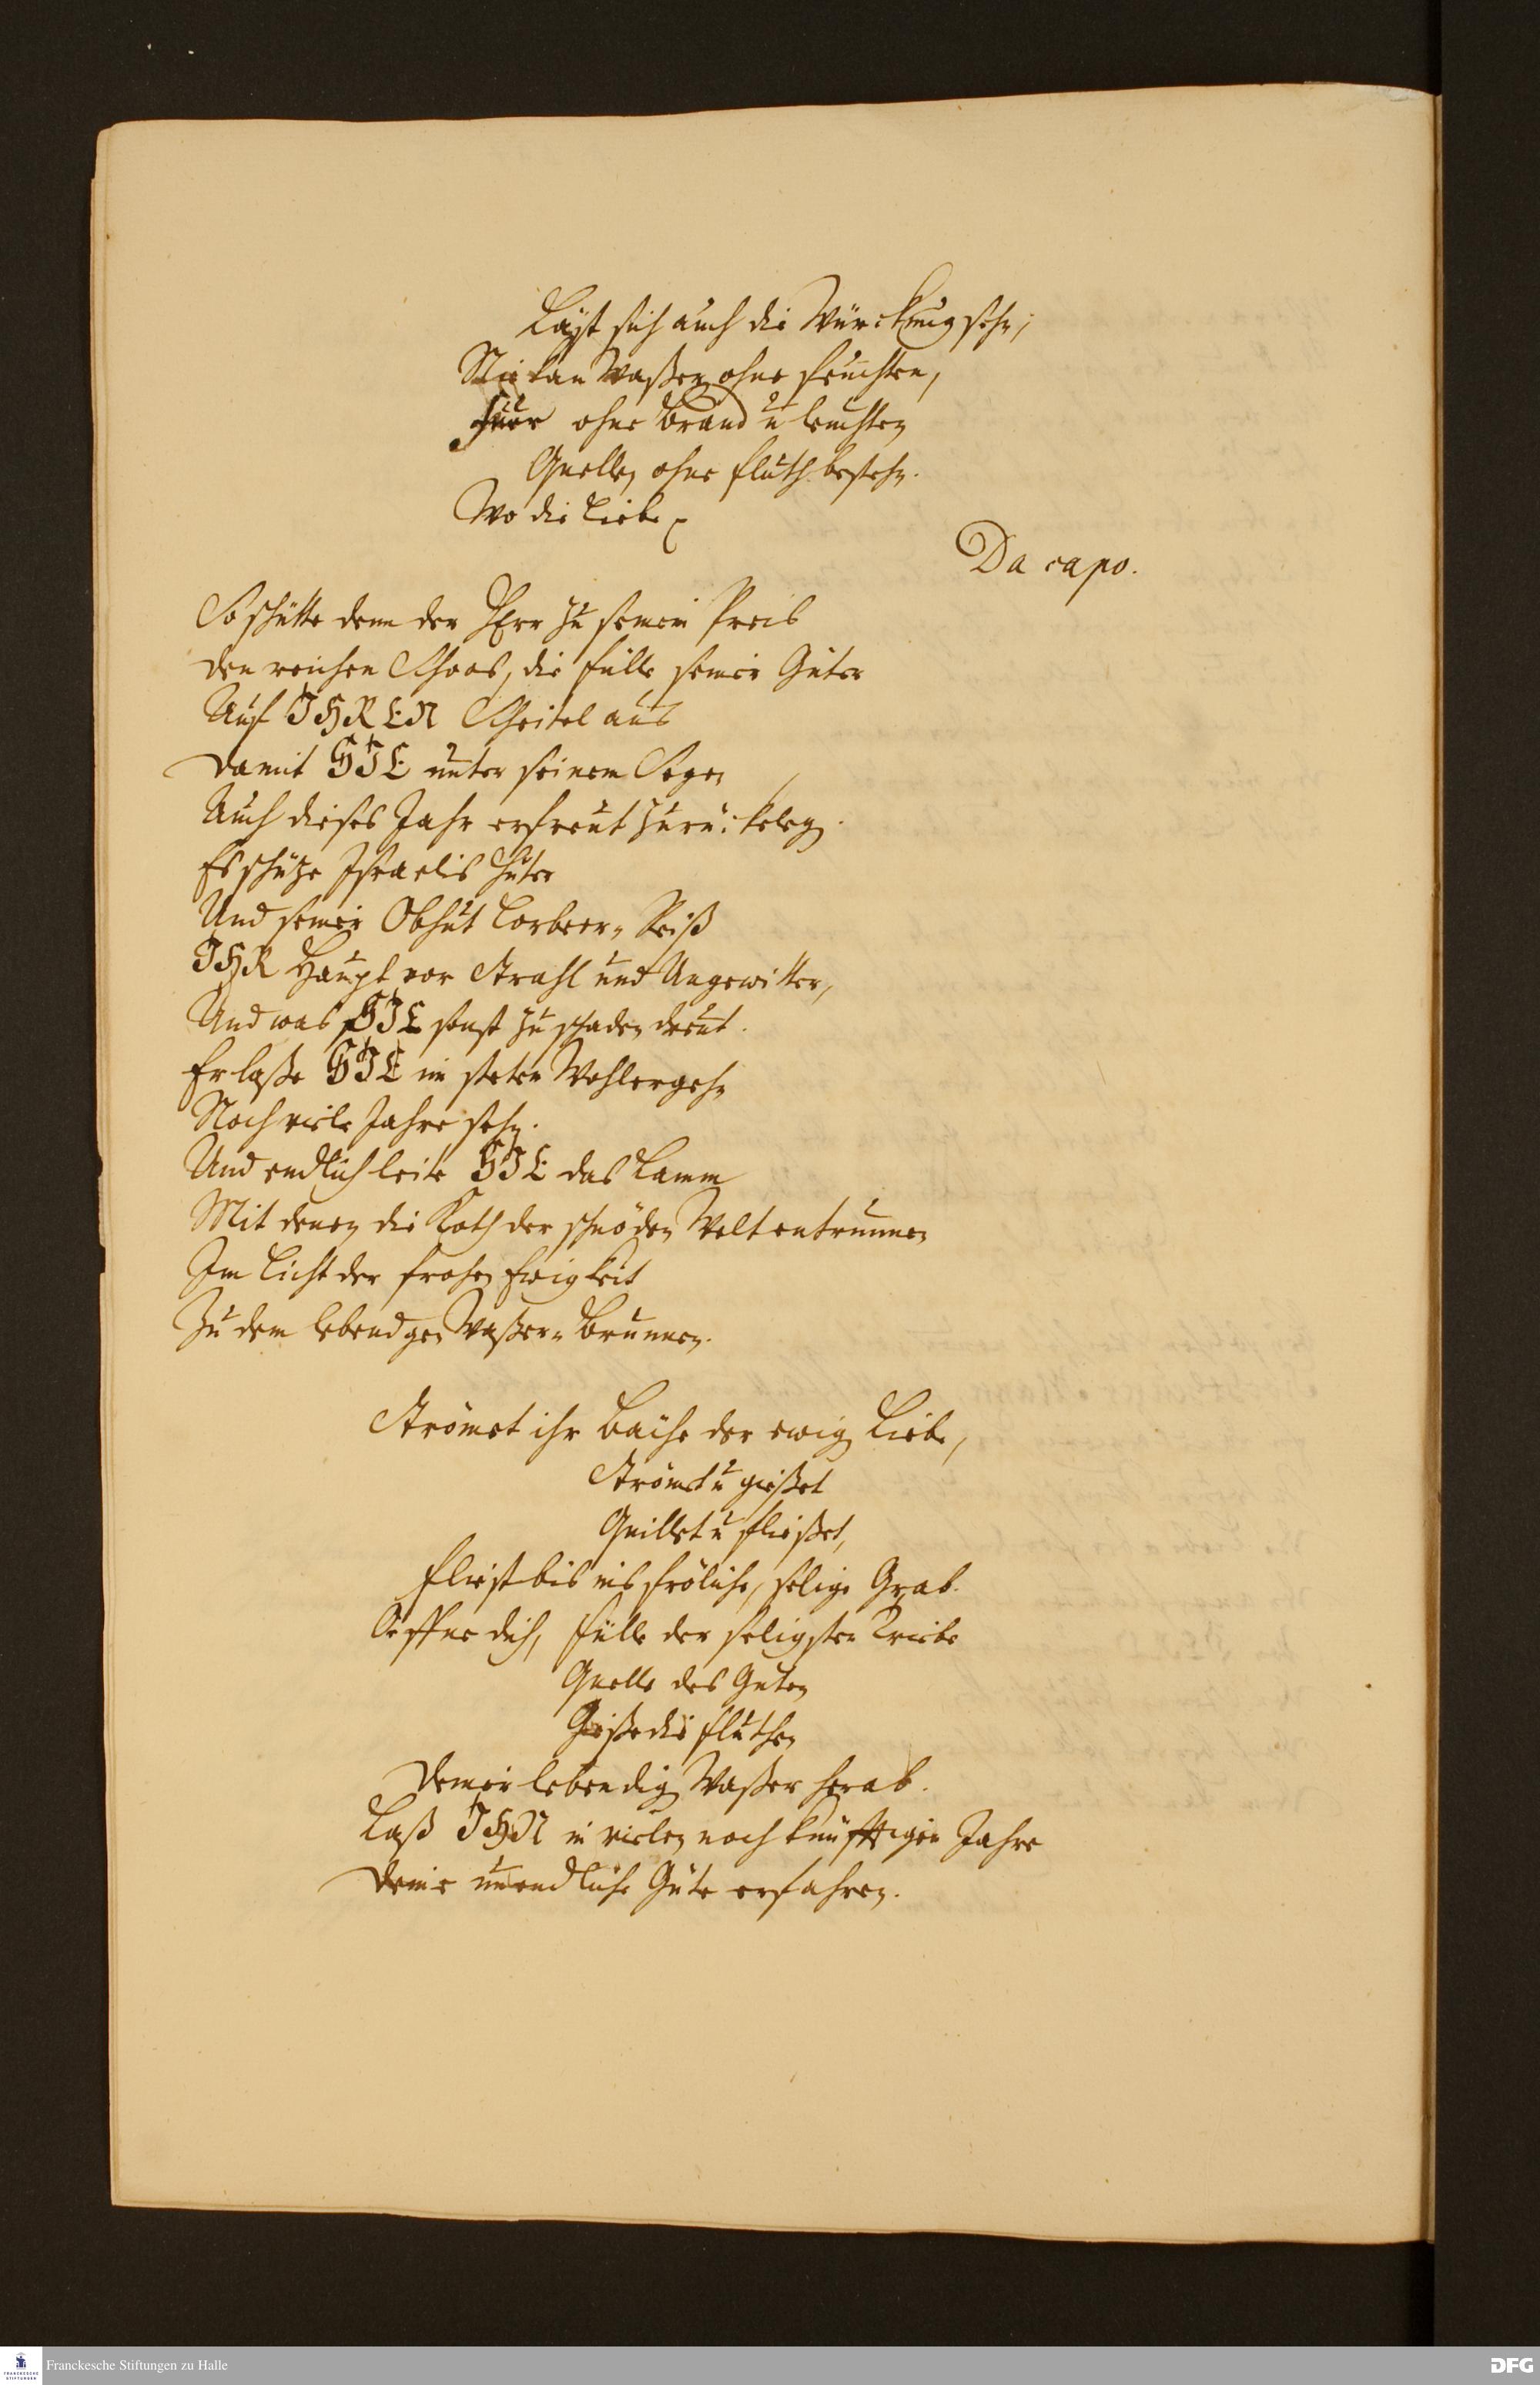 Läßt sich auch die Würckung sehn;
Nie kan Waßer ohne feuchten,
Feuer ohne Brand u leuchten
Quellen ohne Fluth bestehn.
Wo die Liebe
Da capo.
So schütte denn der HErr zu seinem Preis
Den reichen Schoos, die Fülle seiner Güter
Auf IHREN Scheitel aus
Damit SIE unter seinem Segen
Auch dieses Jahr erfreut zurückeleg.
Es schütze Israelis Hüter
Und seiner Obhut Lorbeer-Reiß
IHR Haupt vor Strahl und Ungewitter,
Und was SIE sonst zu schaden dreut.
Er laße SIE im steten Wohlergehn
Noch viele Jahre sehn.
Und endlich leite SIE das Lamm
Mit denen die Koth der schnöden Welt entrunnen
Im Licht der frohen Ewigkeit
Zu dem lebendgen Waßer-Brunnen.
Strömet ihr Bäche der ewigen Liebe,
Strömet u gießet
Quillet u fließet,
Fliest bis ins fröliche, selige Grab.
Oeffne dich, Fülle der seligsten Triebe
Quelle des Guten
Gieße die Fluthen
Deiner lebendigen Waßer herab.
Laß IHN in vielen noch künfftigen Jahren
Deine unendliche Güte erfahren.
Franckesche Stiftungen zu Halle
FRANCKESCHE STIFTUNGEN
DFG